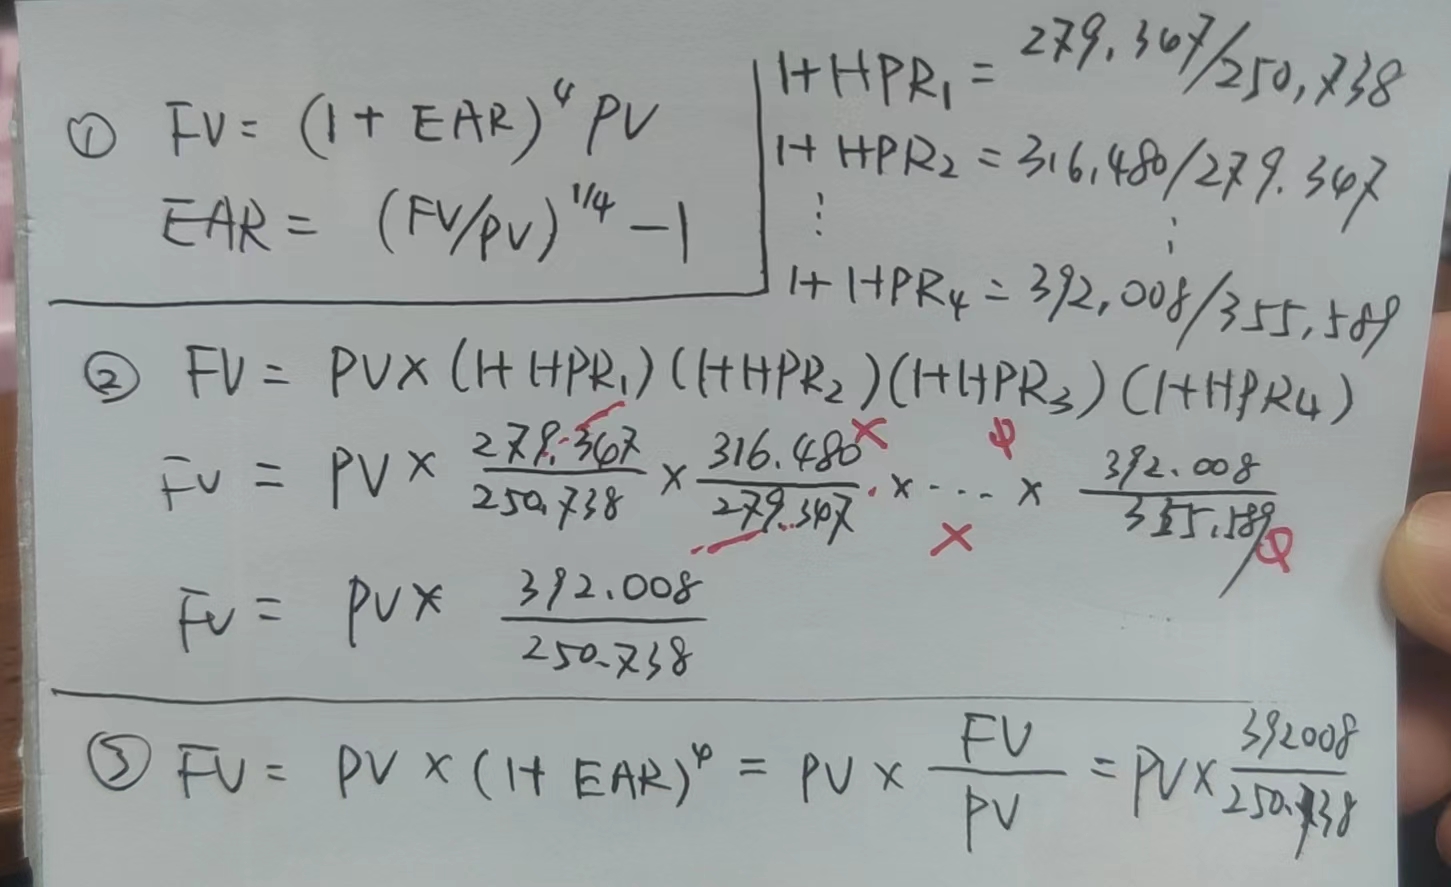 ① FV = (1 + EAR)^4 PV
EAR = (FV/PV)^1/4 - 1
1+HPR₁ = 279.367/250,738
1+HPR₂ = 316,480/279.367
⋮ ⋮
1+HPR₄ = 392,008/355,589
② FV = PV × (1+HPR₁)(1+HPR₂)(1+HPR₃)(1+HPR₄)
FV = PV × 279.367/250.738 × 316.480/279.367 × ... × 392.008/355.589
FV = PV × 392.008/250.738
③ FV = PV × (1+ EAR)^4 = PV × FV/PV = PV × 392008/250.738